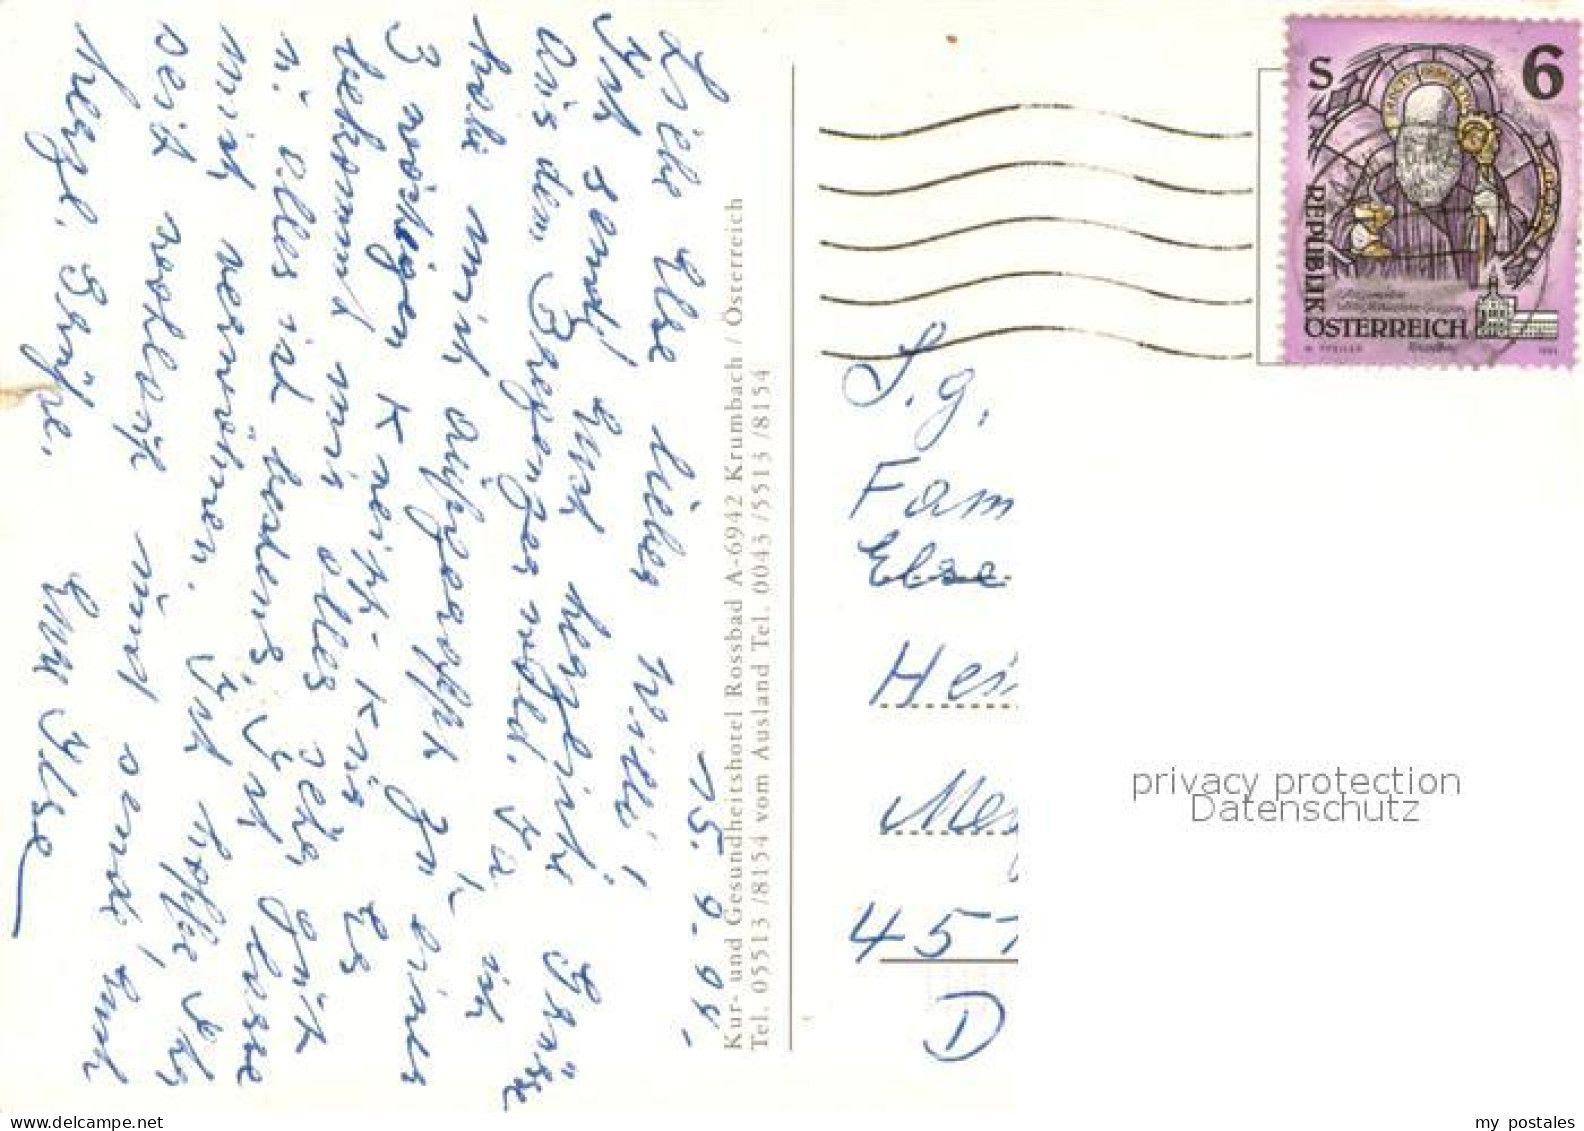 15. 9. 98.
Liebe Else lieber Willi!
Ich sende Euch herzliche Grüsse
aus dem Bregenzerwald.
habe mich aufgerafft zu einer
3 wöchigen Kneipp-Kur
bekommt mir alles
ü. alles ist bestens. Ich lasse
mich verwöhnen. Ich hoffe Ihr
seit wohlauf und sende Euch
herzl. Grüße.
Eure Ilse
Kur- und Gesundheitshotel Rossbad A-6942 Krumbach / Österreich
Tel. 05513 /8154 vom Ausland Tel. 0043 /5513 /8154
S 6
REPUBLIK
ÖSTERREICH
S. g.
Fam
Else
Hei
Me
457
D
privacy protection
Datenschutz
www.delcampe.net
my_postales